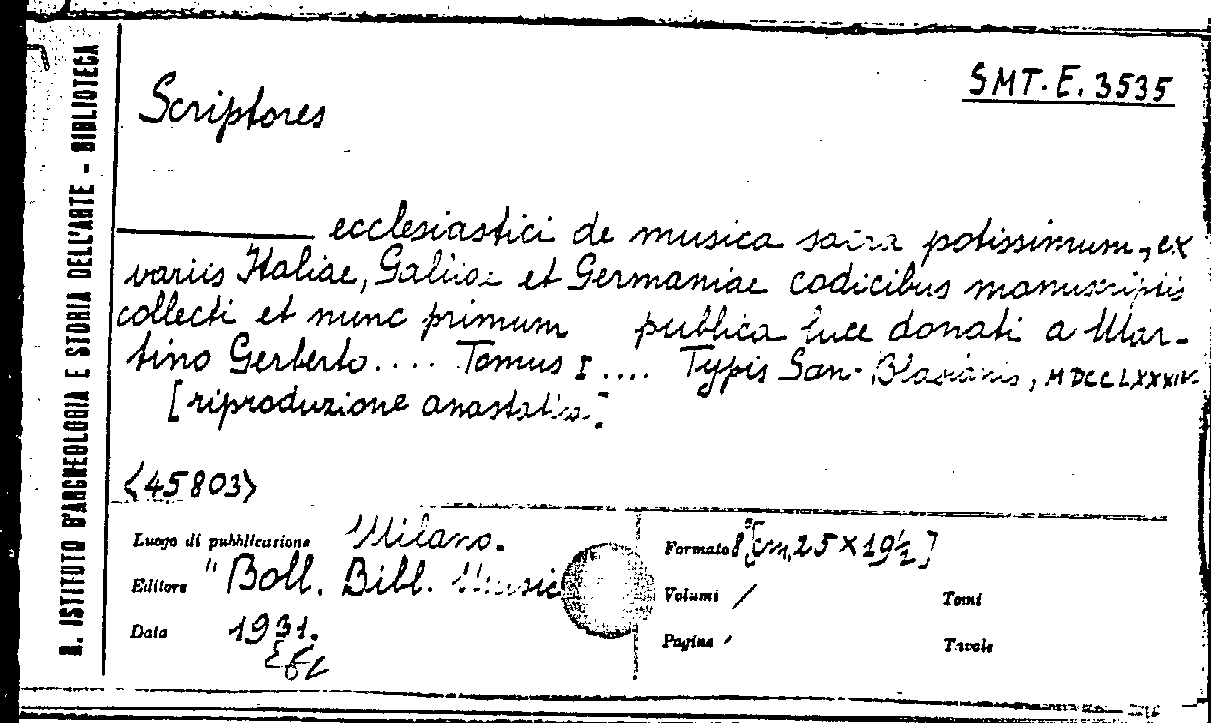 R. ISTITUTO D'ARCHEOLOGIA E STORIA DELL'ARTE - BIBLIOTECA
SMT.E.3535
Scriptores
ecclesiastici de musica sacra potissimum, ex
variis Italiae, Galliae et Germaniae codicibus manuscriptis
collecti et nunc primum publica luce donati a Mar-
tino Gerberto.... Tomus I.... Typis San-Blasianis, MDCCLXXXIV
[riproduzione anastatica]
<45803>
Luogo di pubblicazione Milano.
Editore "Boll. Bibl. Music
Data 1931.
Formato 8° [cm, 25 X 19½]
Volumi / Tomi
Pagine Tavole